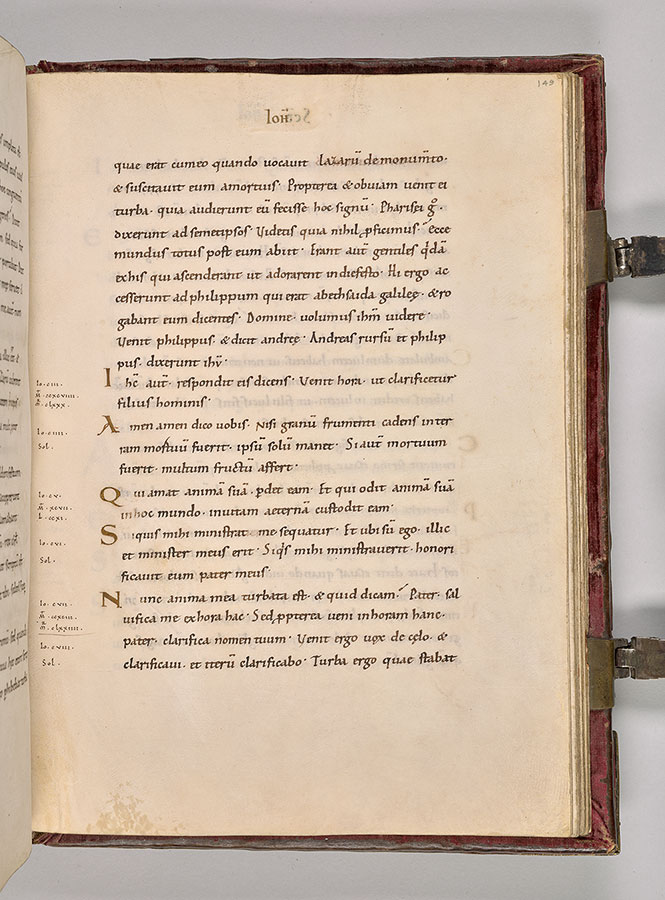 149
Ioh̄
quae erat cumeo quando vocavit lazarū de monum̄to ·
& suscitavit eum amortuis · Propterea & obviam venit ei
turba · quia audierunt eū fecisse hoc signū · Pharisei g̊ ·
dixerunt adsemetipsos · Videtis quia nihil ꝓficimus · ecce
mundus totus post eum abiit · Erant aut̄ gentiles q̇dā
exhis qui ascenderant ut adorarent indiefesto · Hi ergo ac
cesserunt adphilippum qui erat abethsaida galileę · & ro
gabant eum dicentes · Domine · volumus ih̄m videre ·
Venit philippus · & dicit andreę · Andreas rursū et philip
pus · dixerunt ih̄u ·
Ih̄c aut̄ · respondit eis dicens · Venit hora · ut clarificetur
filius hominis ·
Amen amen dico vobis · Nisi granū frumenti cadens inter
ram mortuū fuerit · ipsū solū manet · Si aut̄ mortuum
fuerit · multum fructū affert ·
Qui amat animā suā · ꝑdet eam · Et qui odit animā suā
inhoc mundo · invitam aeternā custodit eam ·
Siquis mihi ministrat · me sequatur · Et ubi sū ego · illic
et minister meus erit · Siq̇s mihi ministraverit · honori
ficavit eum pater meus ·
Nunc anima mea turbata est · & quid dicam · Pater · sal
vifica me exhora hac · Sed ꝓpterea veni inhoram hanc ·
pater · clarifica nomen tuum · Venit ergo vox de cęlo · &
clarificavi · et iterū clarificabo · Turba ergo quae stabat
Io · ciii ·
m̄ · ccxcviii ·
m̄ · clxxx ·
Io · ciiii ·
Sol ·
Io · cv ·
m̄ · xcvii ·
l · ccxi ·
Io · cvi ·
Sol ·
Io · cvii ·
Io · cviii ·
Sol ·